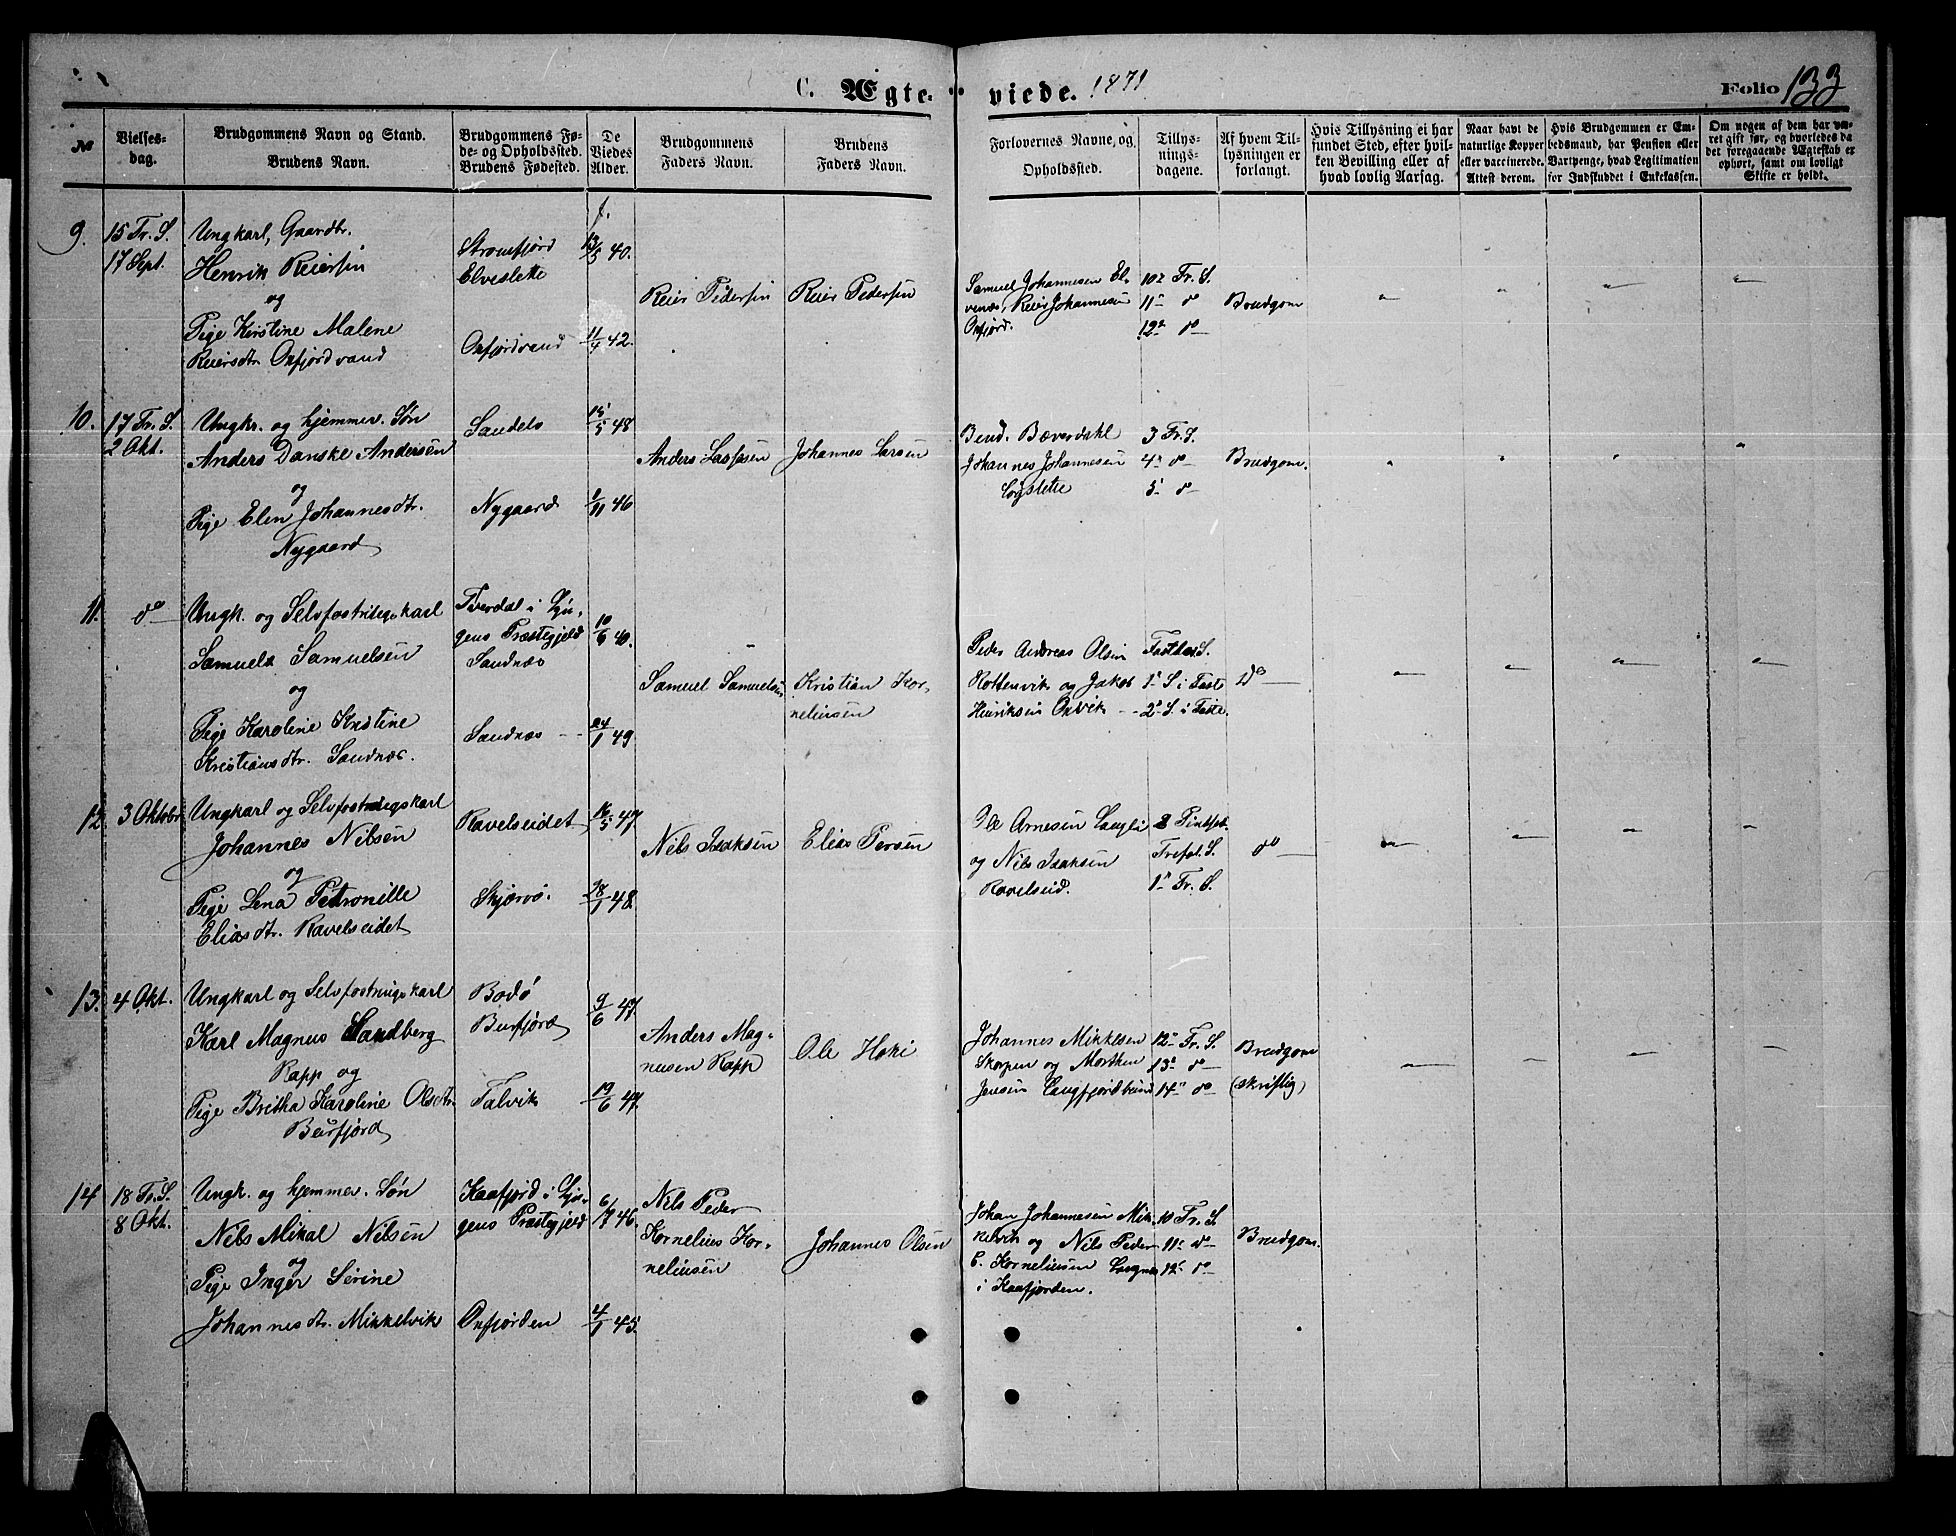 C. Ægte- viede. 1871
Folio 133
№
Vielses-
dag.
Brudgommens Navn og Stand.
Brudens Navn.
Brudgommens Fø-
de- og Opholdssted.
Brudens Fødested.
De
Viedes
Alder.
Brudgommens
Faders Navn.
Brudens
Faders Navn.
Forlovernes Navne, og
Opholdssted.
Tillys-
nings-
dagene.
Af hvem Til-
lysningen er
forlangt.
Hvis Tillysning ei har
fundet Sted, efter hvil-
ken Bevilling eller af
hvad lovlig Aarsag.
Naar havt de
naturlige Kopper
eller vaccinerede.
Attest derom.
Hvis Brudgommen er Em-
bedsmand, har Pension eller
Vartpenge, hvad Legitimation
for Indskuddet i Enkekassen.
Om nogen af dem har væ-
ret gift før, og hvorledes da
det foregaaende Ægteskab er
ophørt, samt om lovligt
Skifte er holdt.
9.
15 Fr. S.
17 Sept.
Ungkarl, Gaardbr.
Henrik Reiersen
og
Pige Kirstine Malene
Reiersdtr. Oxfjordvand
Straumfjord
Elveslette
Oxfjordvand
f.
13/5 40.
11/4 42.
Reier Pedersen
Reier Pedersen
Samuel Johannesen El-
venæs, Reier Johannesen
Oxfjord.
10de Fr. S.
11te do
12te do
Brudgom
10.
17 Fr. S.
2 Okt.
Ungkr. og hjemmev. Søn
Anders Danske Andersen
og
Pige Elen Johannesdtr.
Nygaard
Sandels
Nygaard
15/5 48
1/11 46
Anders Lassesen
Johannes Larsen
Bend. Bæverdahl
Johannes Johannesen
Langslette
3 Fr. S.
4de do
5te do
Brudgom.
11.
do
Ungk. og Selvfostringskarl
Samuel Samuelsen
og
Pige Karoline Kristine
Kristiansdtr. Sandnæs.
Tverdal i Lyn-
gens Præstegjeld
Sandnæs
Sandnæs
10/6 40.
24/1 49
Samuel Samuelsen
Kristian Kor-
neliusen
Peder Andreas Olsen
Rottenvik og Jakob
Henriksen Oxvik
Fastlav. S.
1te S. i Faste
2den S. i Faste.
Do
12
3 Oktobr
Ungkarl og Selvfostringskarl
Johannes Nilsen
og
Pige Lena Petronille
Eliasdtr. Ravelseidet
Ravelseidet
Skjærvø.
16/5 47.
28/1 48.
Nils Isaksen
Elias Persen
Ole Arnesen Langli
og Nils Isaksen
Ravelseid.
2 Pintsed.
Tref. S.
1te Fr. S.
do
13.
4 Okt.
Ungkarl og Selvfostringskarl
Karl Magnus Sandberg
Rapp og
Pige Britha Karoline Olsdtr.
Burfjord
Bodø
Burfjord
Talvik
9/6 47.
19/6 47.
Anders Mag-
nusen Rapp
Ole Heki
Johannes Mikkelsen
Skorpen og Morthen
Jensen Langfjordbund
12te Fr. S.
13de do
14de do
Brudgom
(skriftlig)
14
18 Fr. S.
8 Okt.
Ungk. og hjemmev. Søn
Nils Mikal Nilsen
og
Pige Inger Serine
Johannesdtr. Mikkelvik
Kaafjord i Lyn-
gens Præstegjeld
Oxfjorden
6/7 46.
4/1 45.
Nils Peder
Kornelius Kor-
neliusen
Johannes Olsen
Johan Johannesen Mik-
kelvik og Nils Peder
C. Korneliusen Langnes
i Kaafjorden.
10 Fr. S.
11te do
12te do
Brudgom.